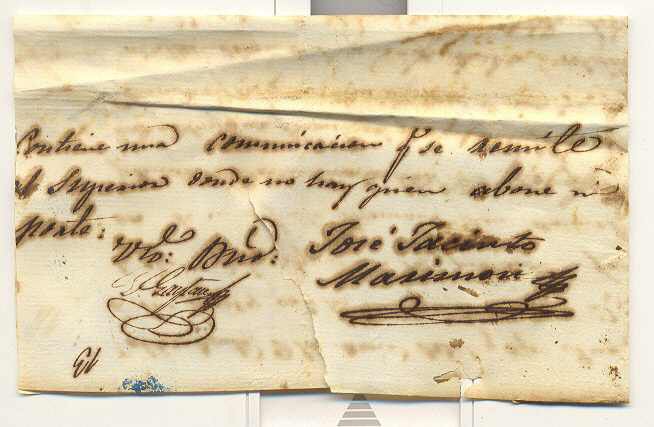 Contiene una comunicacion q̃ se remite
al Superior donde no hay quien abone su
porte:
Vto. Bno: José Jacinto
Marimon